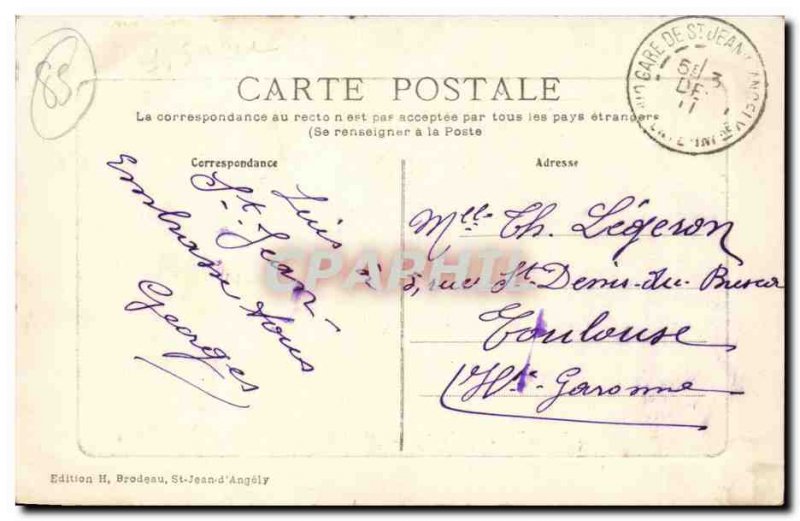 85-
CARTE POSTALE
La correspondance au recto n est pas acceptée par tous les pays étrangers
(Se renseigner à la Poste
GARE DE ST JEAN D'ANGELY
5 / 3
DE
11
Correspondance
Adresse
Suis à
St. Jean
Embrasse tous
Georges
Mlle Th. Légeron
3, rue St Denis-du-Busca
Toulouse
Hte-Garonne
CPARAMA
Edition H, Brodeau, St-Jean-d'Angély